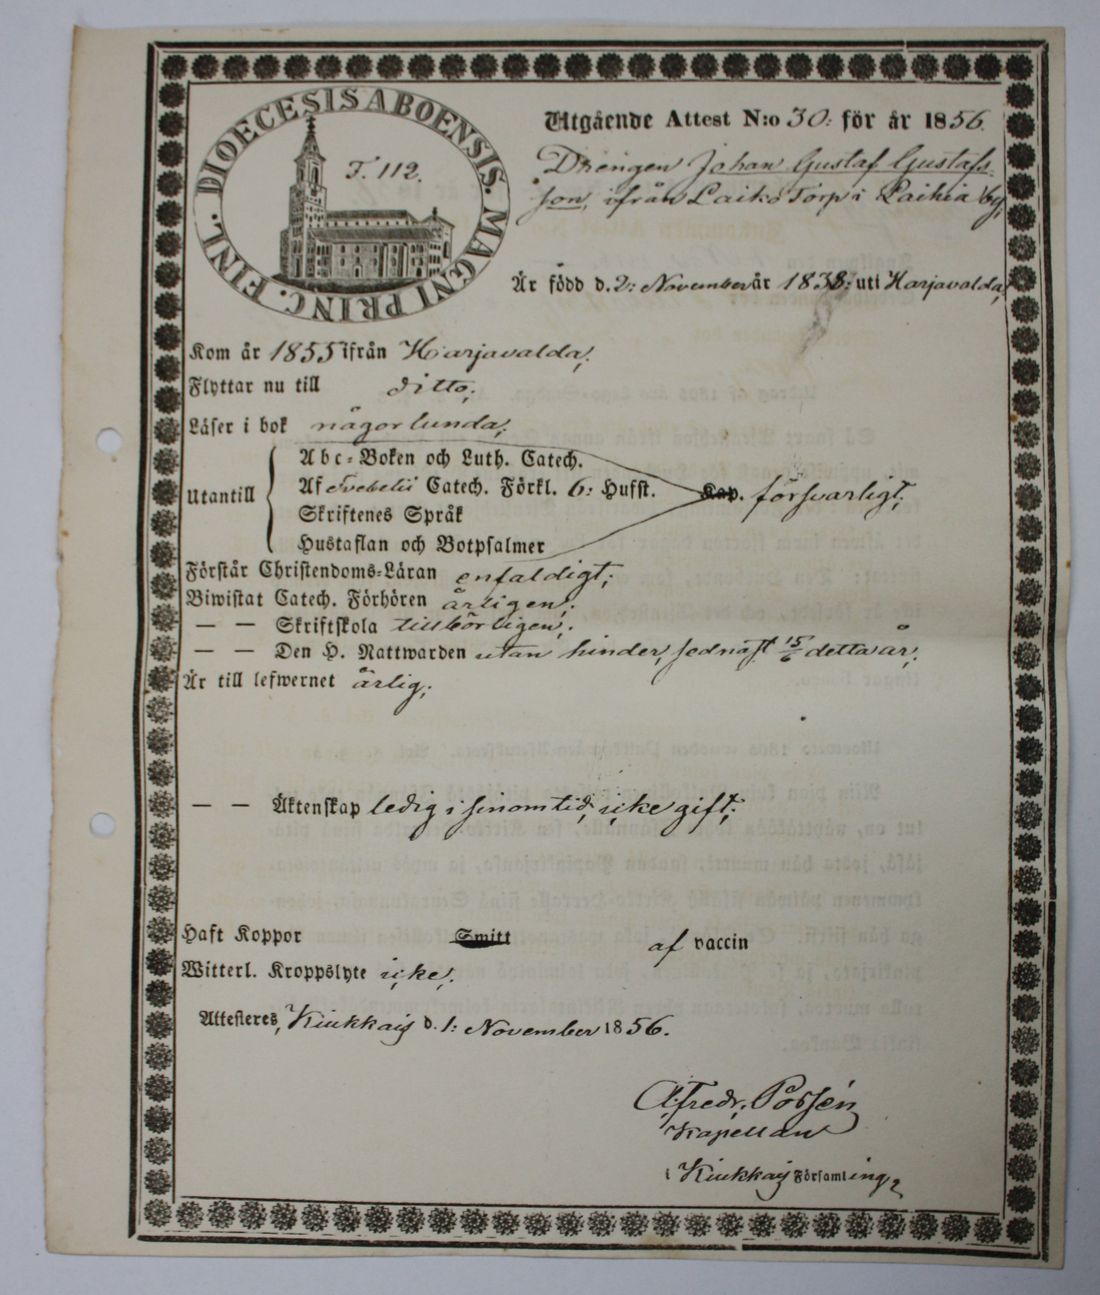 DIOECESIS ABOENSIS. MAGNI PRINC. FINL.
F. 112.
Utgående Attest N:o 30: för år 1856.
Drengen Johan Gustaf Gustafs-
son, ifrån Laiko Torp i Laihia by,
Är född d. 2: November år 1838: uti Harjavalda,
Kom år 1855 ifrån Harjavalda,
Flyttar nu till ditto,
Läser i bok någorlunda,
Utantill
Abc-Boken och Luth. Catech.
Af Svebelii Catech. Förkl. 6: Hufst. Kap. försvarligt,
Skriftenes Språk
Hustaflan och Botpsalmer
Förstår Christendoms-Läran enfaldigt,
Biwistat Catech. Förhören årligen,
— — Skriftskola tillbörligen,
— — Den H. Nattwarden utan hinder, sednast 15/6 detta år,
Är till lefwernet ärlig,
— — Äktenskap ledig i sinom tid, icke gift,
Haft Koppor Smitt af vaccin
Witterl. Kroppslyte icke,
Attesteres, Kiukkais d. 1: November 1856.
Alfredr. Porsén
Kapellan
i Kiukkais Församling,